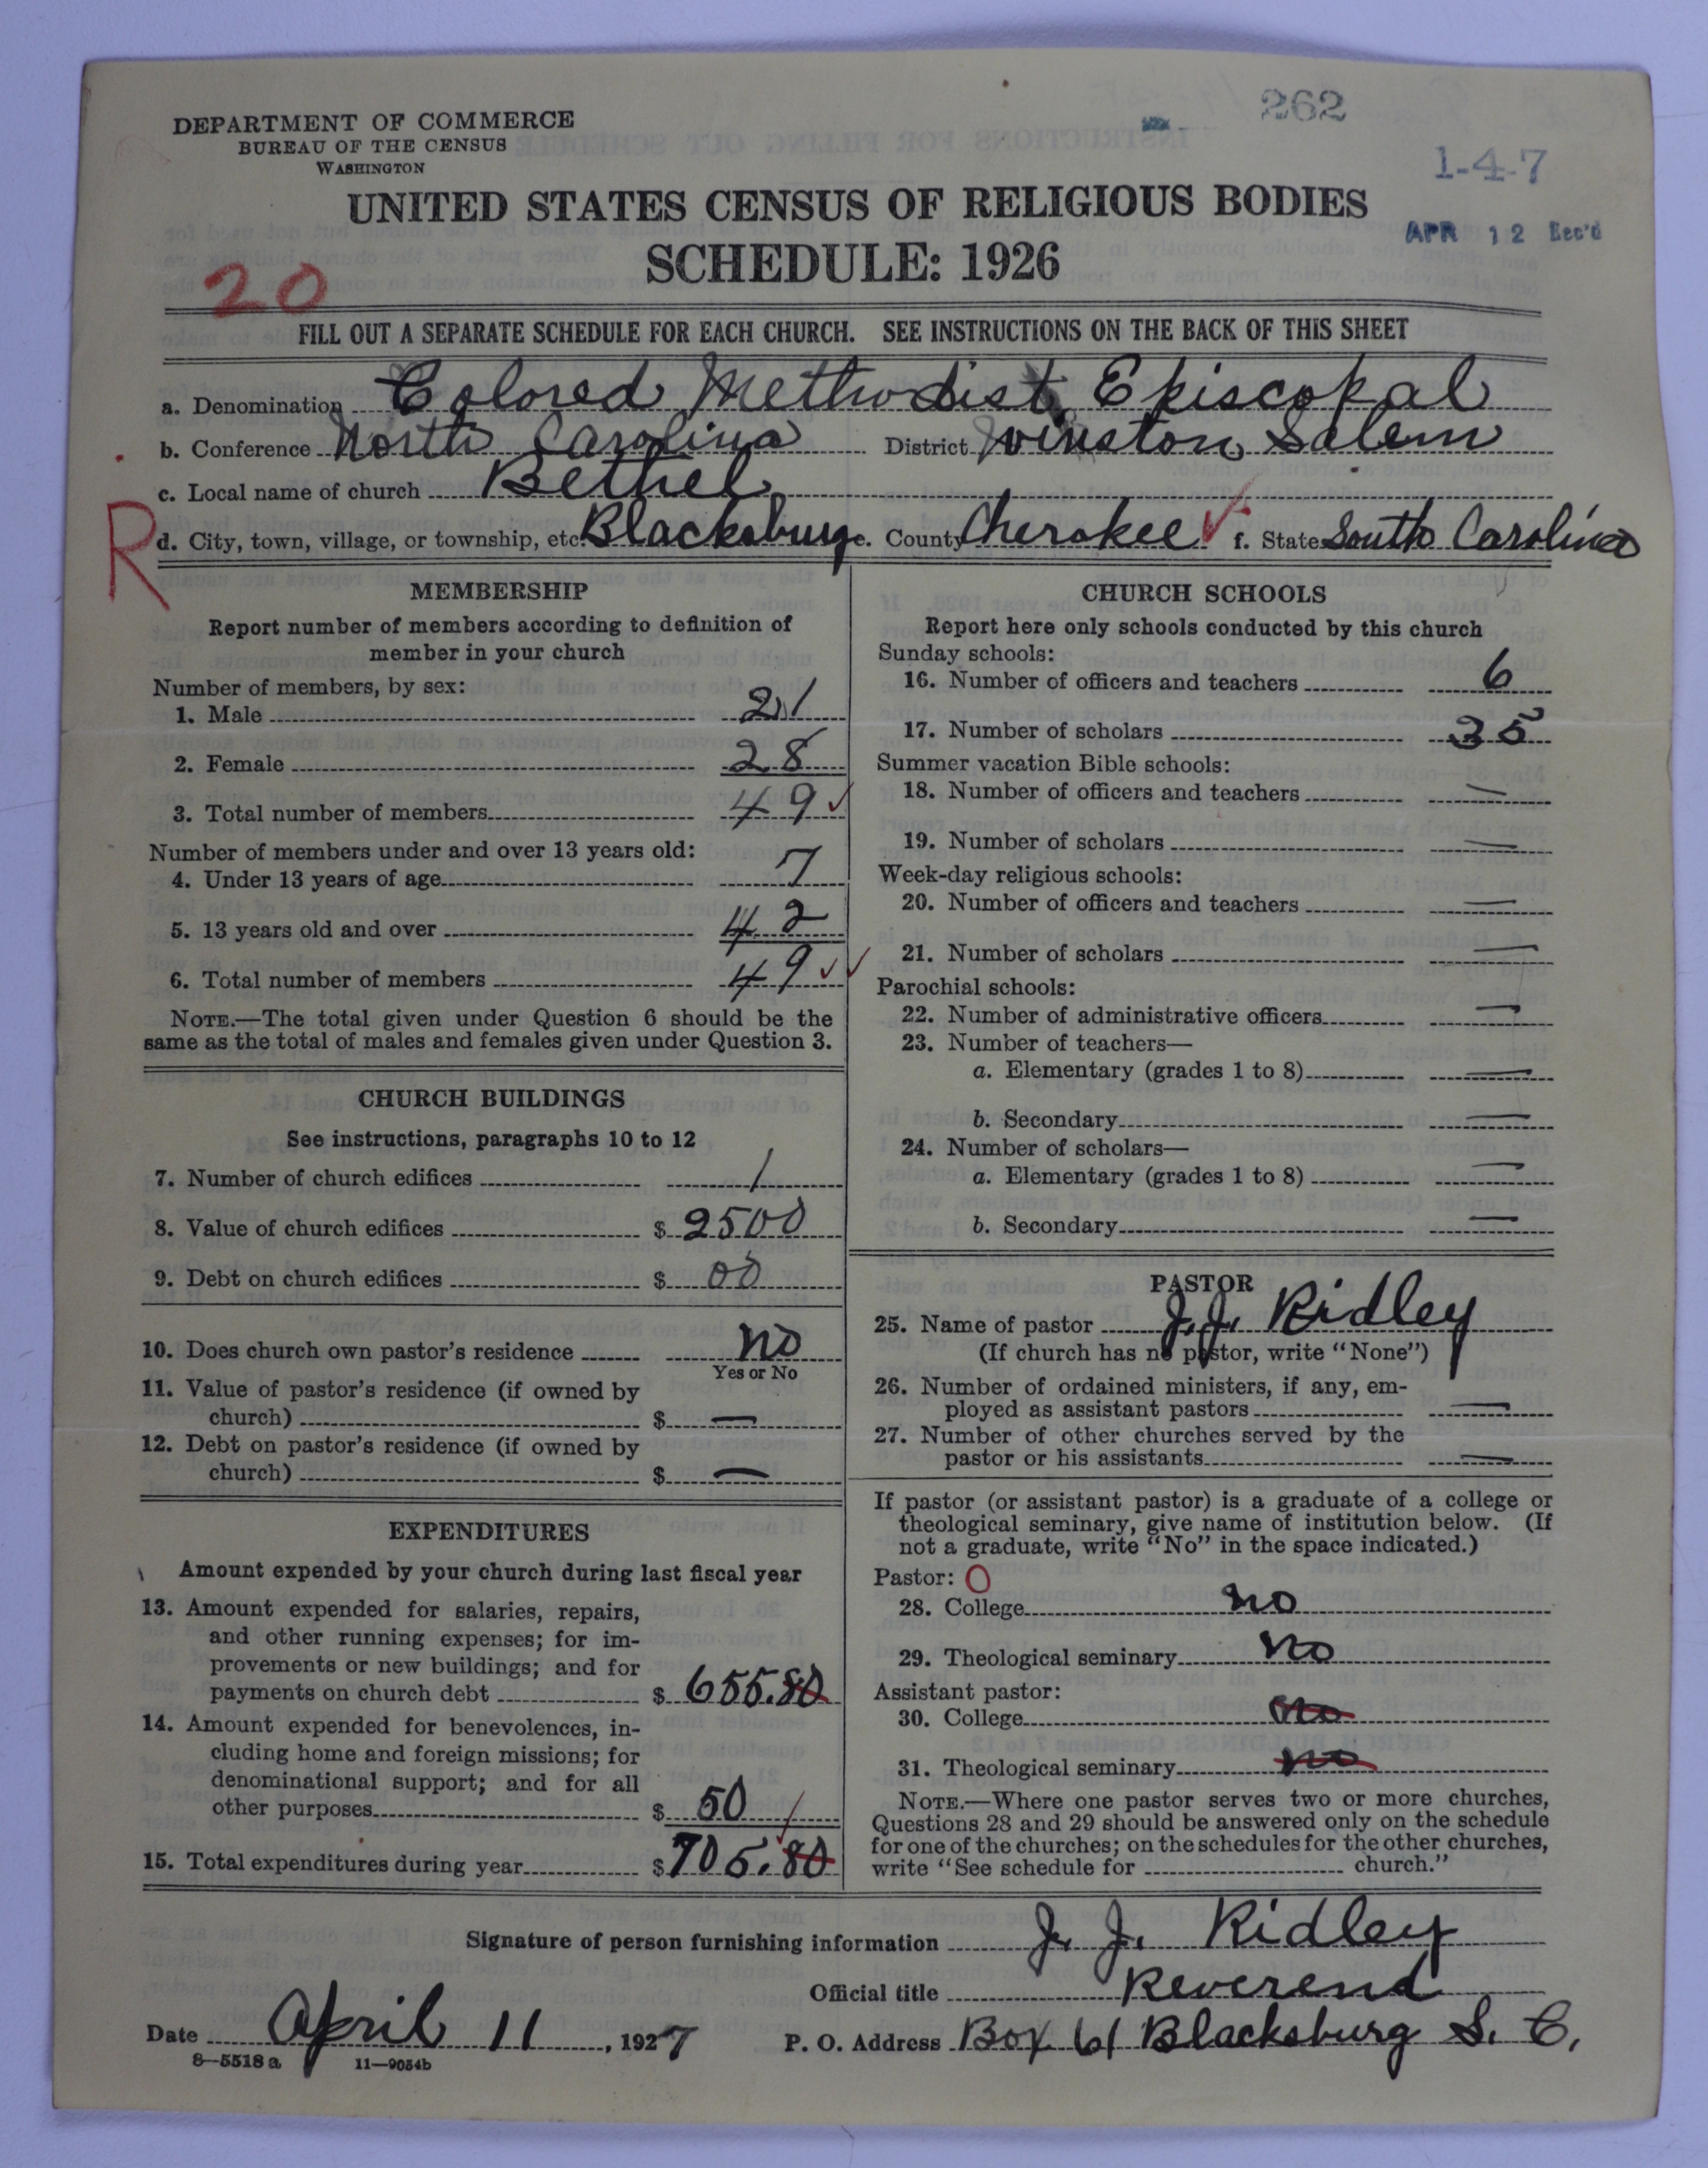 262
DEPARTMENT OF COMMERCE
BUREAU OF THE CENSUS
WASHINGTON
1-4-7
UNITED STATES CENSUS OF RELIGIOUS BODIES
APR 12 Rec'd
SCHEDULE: 1926
20
FILL OUT A SEPARATE SCHEDULE FOR EACH CHURCH. SEE INSTRUCTIONS ON THE BACK OF THIS SHEET
a. Denomination Colored Methodist Episcopal
b. Conference North Carolina District Winston Salem
c. Local name of church Bethel
R
d. City, town, village, or township, etc. Blacksburg e. County Cherokee ✓ f. State South Carolina
MEMBERSHIP
Report number of members according to definition of
member in your church
Number of members, by sex:
1. Male 21
2. Female 28
3. Total number of members 49 ✓
Number of members under and over 13 years old:
4. Under 13 years of age 7
5. 13 years old and over 42
6. Total number of members 49 ✓✓
NOTE.—The total given under Question 6 should be the
same as the total of males and females given under Question 3.
CHURCH BUILDINGS
See instructions, paragraphs 10 to 12
7. Number of church edifices 1
8. Value of church edifices $ 2500
9. Debt on church edifices $ 00
10. Does church own pastor's residence no
Yes or No
11. Value of pastor's residence (if owned by
church) $ —
12. Debt on pastor's residence (if owned by
church) $ —
EXPENDITURES
Amount expended by your church during last fiscal year
13. Amount expended for salaries, repairs,
and other running expenses; for im-
provements or new buildings; and for
payments on church debt $ 655.80
14. Amount expended for benevolences, in-
cluding home and foreign missions; for
denominational support; and for all
other purposes $ 50
15. Total expenditures during year $ 705.80
CHURCH SCHOOLS
Report here only schools conducted by this church
Sunday schools:
16. Number of officers and teachers 6
17. Number of scholars 35
Summer vacation Bible schools:
18. Number of officers and teachers —
19. Number of scholars —
Week-day religious schools:
20. Number of officers and teachers —
21. Number of scholars —
Parochial schools:
22. Number of administrative officers —
23. Number of teachers—
a. Elementary (grades 1 to 8) —
b. Secondary —
24. Number of scholars—
a. Elementary (grades 1 to 8) —
b. Secondary —
PASTOR
25. Name of pastor J. J. Ridley
(If church has no pastor, write "None")
26. Number of ordained ministers, if any, em-
ployed as assistant pastors —
27. Number of other churches served by the
pastor or his assistants —
If pastor (or assistant pastor) is a graduate of a college or
theological seminary, give name of institution below. (If
not a graduate, write "No" in the space indicated.)
Pastor: O
28. College no
29. Theological seminary no
Assistant pastor:
30. College no
31. Theological seminary no
NOTE.—Where one pastor serves two or more churches,
Questions 28 and 29 should be answered only on the schedule
for one of the churches; on the schedules for the other churches,
write "See schedule for church."
Signature of person furnishing information J. J. Ridley
Official title Reverend
Date April 11, 1927 P. O. Address Box 61 Blacksburg S. C.
8—5518 a 11—9054b